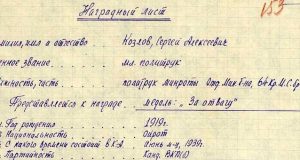 153
Наградный лист
милия, имя и отчество Козлов, Сергей Алексеевич
енное звание мл. политрук
жность, часть политрук минроты Отд.
Представляется к награде медаль: „За отвагу"
Год рождения 1919г.
Национальность Ойрот
С какого времени состоит в К.А. Июнь м-ц, 1939г.
Партийность Канд. ВКП(б)